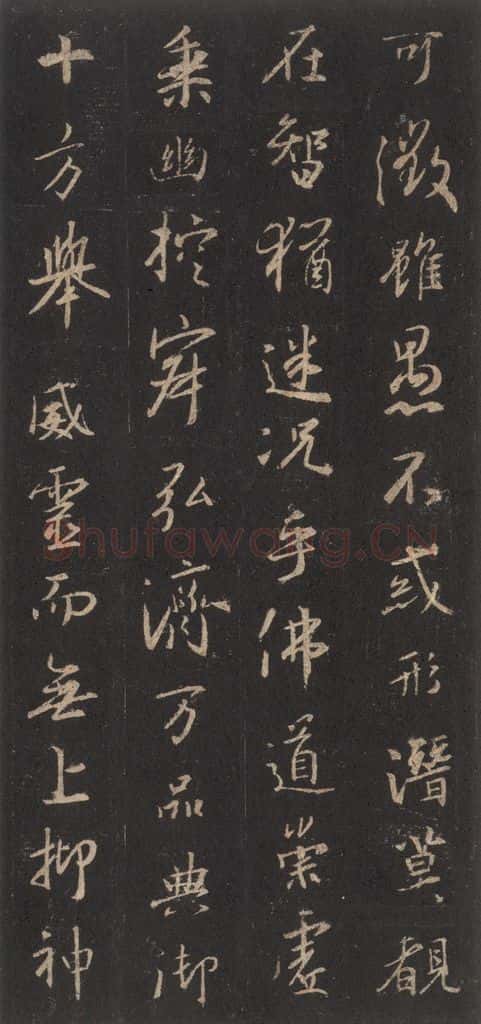 可徵雖愚不惑形潛莫覩
在智猶迷况乎佛道崇虛
乘幽控寂弘濟万品典御
十方舉威靈而無上抑神
Shufawang.CN